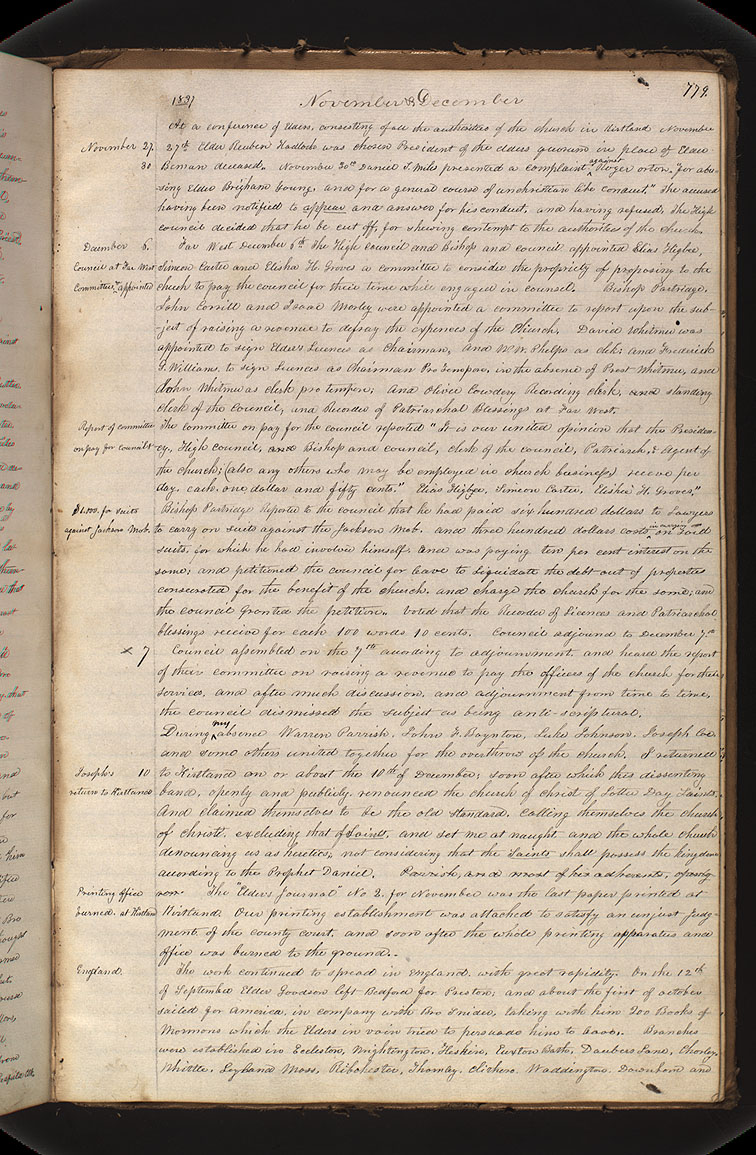 1837 November & December 779.
At a conference of Elders, consisting of all the authorities of the church in Kirtland November
November 27. 27th Elder Reuben Hadlock was chosen President of the elders quorum in place of Elder
30 Beman deceased. November 30th Daniel S. Miles presented a complaint against Roger orton, "for abu-
sing Elder Brigham Young, and for a general course of unchristian like conduct," the accused
having been notified to appear and answer for his conduct, and having refused, The High
council decided that he be cut off, for shewing contempt to the authorities of the church.
December 6. Far West December 6th The High Council and Bishop and council appointed Elias Higbee,
Council at Far West Simeon Carter and Elisha H. Groves a committee to consider the propriety of proposing to the
Committees appointed church to pay the council for their time while engaged in counsel. Bishop Partridge,
John Corrill and Isaac Morley were appointed a committee to report upon the sub-
-ject of raising a revenue to defray the expences of the Church. David Whitmer was
appointed to sign Elders Licences as Chairman, and W. W. Phelps as clek; and Frederick
G. Williams, to sign Licences as Chairman Pro Tempore, in the absence of Prest Whitmer, and
John Whitmer as clerk pro tempore; and Oliver Cowdery Recording clerk, and standing
clerk of the Council, and Recorder of Patriarchal Blessings at Far West.
Report of committee The committee on pay for the council reported "It is our united opinion that the Presiden-
on pay for councils &c cy, High council, and Bishop and council, clerk of the council, Patriarch, & Agent of
the church; (also any others who may be employed in church business) receive per
day, each, one dollar and fifty cents." Elias Higbee, Simeon Carter, Elisha H. Groves."
$1,100. for suits Bishop Partridge Reported to the council that he had paid six hundred dollars to Lawyers
against Jackson Mob. to carry on suits against the Jackson Mob. and three hundred dollars costs on said
suits, for which he had involved himself, and was paying ten per cent interest on the
same; and petitioned the council for leave to liquidate the debt out of properties
consecrated for the benefit of the church, and charge the church for the same; and
the council Granted the petition. Voted that the Recorder of Licences and Patriarchal
blessings receive for each 100 words 10 cents. Council adjound to December 7th
× 7 Council assembled on the 7th according to adjournment, and heard the report
of their committee on raising a revenue to pay the officers of the church for their
services, and after much discussion, and adjournment from time to time,
the council dismissed the subject as being anti-scriptural.
During my absence Warren Parrish, John F. Boynton, Luke Johnson, Joseph Coe
and some others united together for the overthrow of the church. I returned
Joseph's 10 to Kirtland on or about the 10th of December; soon after which this dissenting
return to Kirtland band, openly and publicly, renounced the church of Christ of Latter Day Saints,
And claimed themselves to be the old standard, calling themselves the church
of Christ, excluding that of Saints, and set me at naught, and the whole church
denouncing us as heretics; not considering that the Saints shall possess the kingdom
according to the Prophet Daniel.
Printing office The "Elders Journal" No 2. for November was the last paper printed at
burned. at Kirtland Kirtland. Our printing establishment was attached to satisfy an unjust judg-
ment, of the county court, and soon after the whole printing apparatus and
office was burned to the ground.
England. The work continued to spread in England. with great rapidity. On the 12th
of September Elder Goodson left Bedford for Preston, and about the first of october
sailed for America, in company with Bro Snider, taking with him 200 Books of
Mormons which the Elders in vain tried to persuade him to leave. Branches
were established in Eccleston, Wrightington, Heskin, Euxton Bath, Daubers Lane, Chorley,
Whittle, Leyland Moss, Ribchester, Thornley, Clithero. Waddington. Downham and